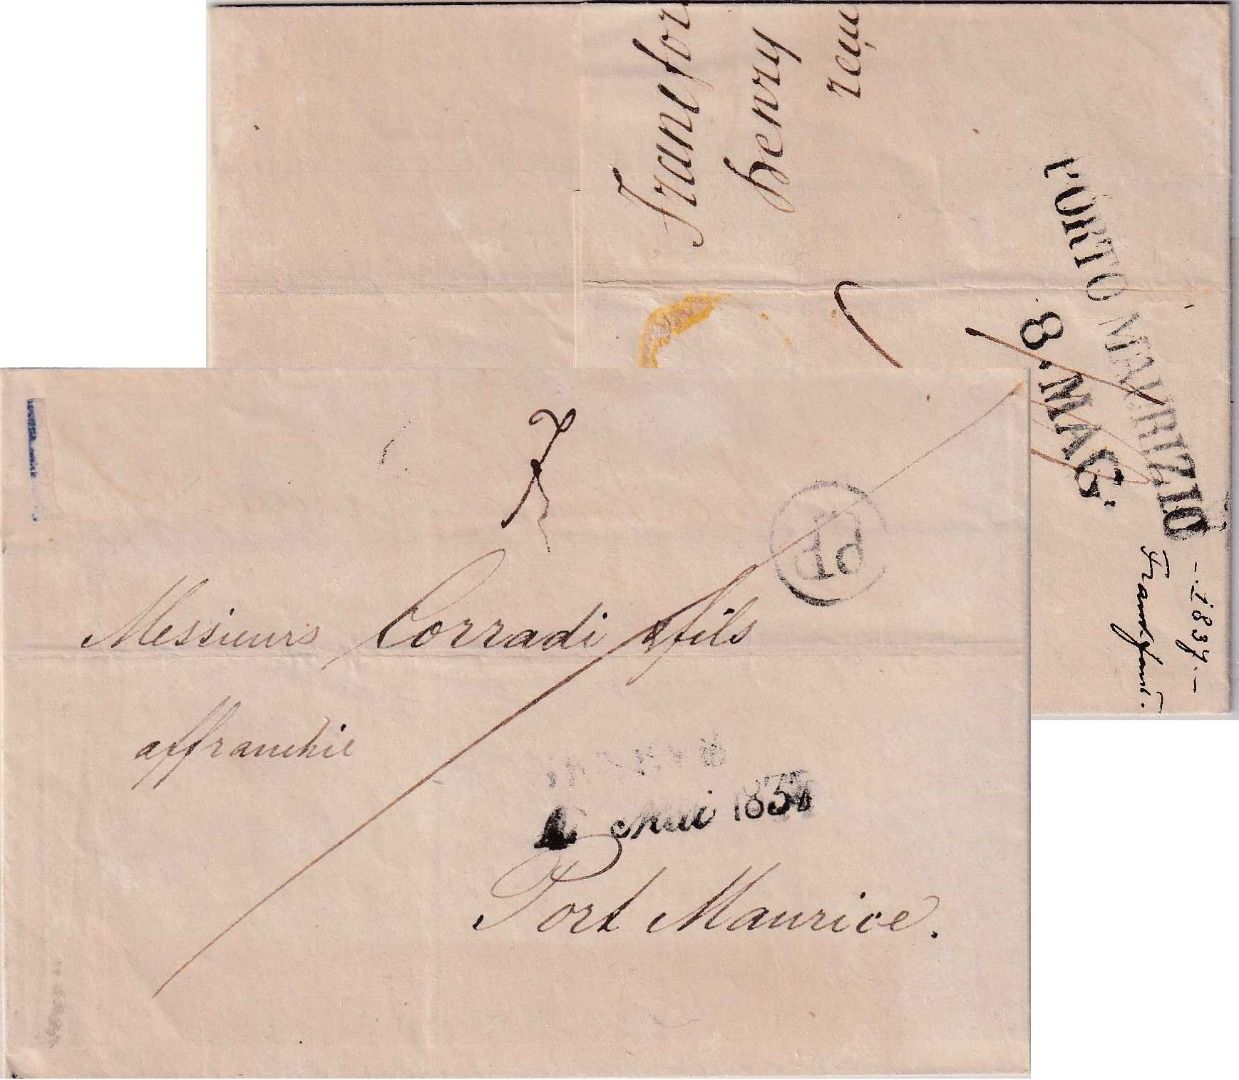 Francfor
Henry
reçu
PORTO MAURIZIO
8 · MAG ·
– 1837. –
Francfort.
P.P.
Messieurs Corradi & fils
affranchie
Mai 1837
Port Maurice.